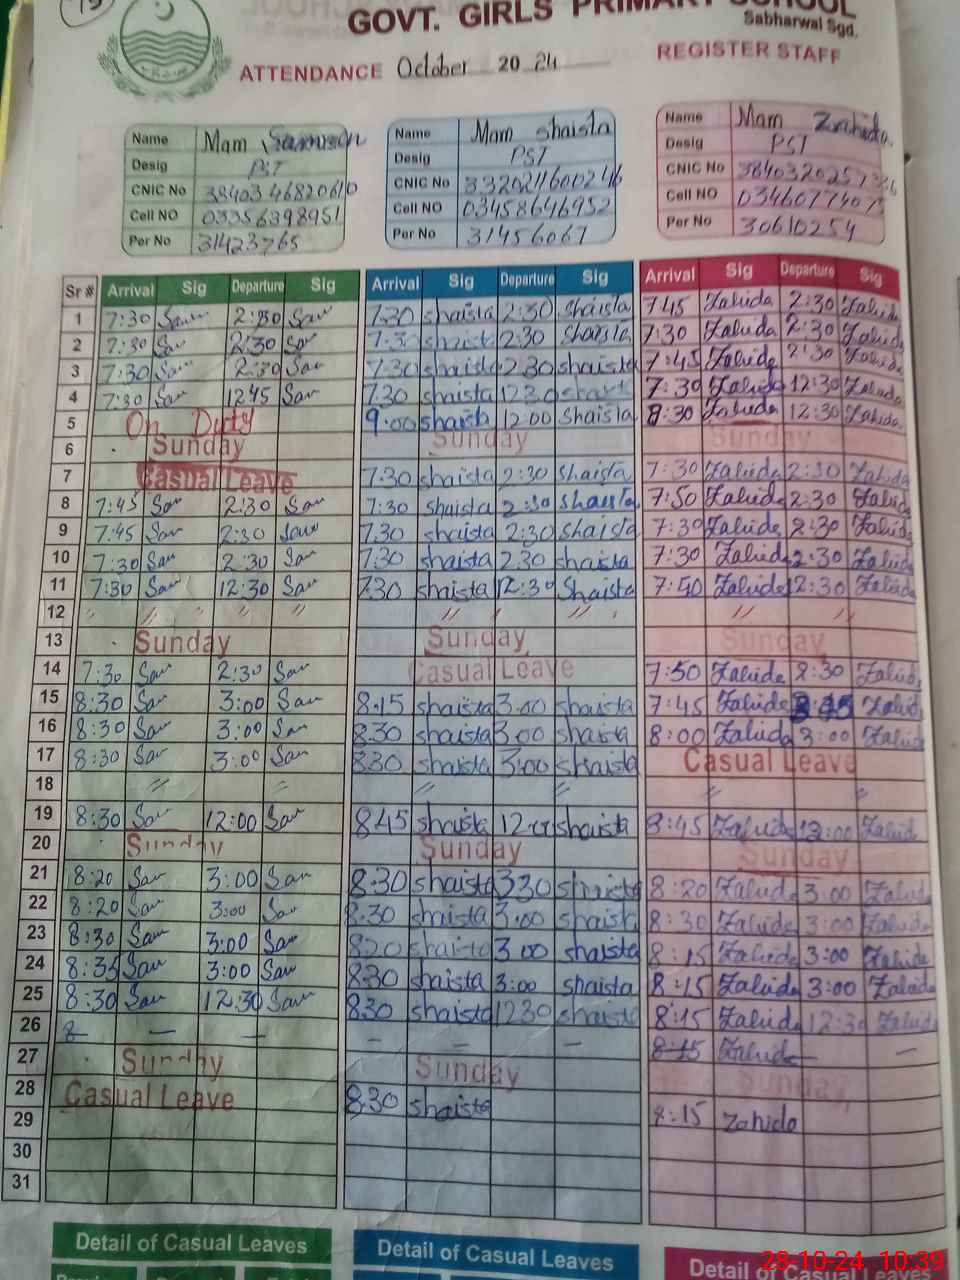 GOVT. GIRLS PRIMARY SCHOOL
Sabharwal Sgd.
ATTENDANCE October 2024 REGISTER STAFF
Name Mam Name Mam Shaista Name Mam Zahida
Desig PST Desig PST Desig PST
CNIC No CNIC No CNIC No
Cell NO 03356398951 Cell NO 03458646952 Cell NO
Per No 31423765 Per No 31456067 Per No 30610254
Sr # Arrival Sig Departure Sig Arrival Sig Departure Sig Arrival Sig Departure Sig
1 7:30 San 2:30 San 7.30 shaista 2:30 Shaista 7:45 Zahida 2:30 Zahida
2 7:30 San 2:30 San 7:30 shaista 2:30 Shaista 7:30 Zahida 2:30 Zahida
3 7:30 San 2:30 San 7:30 shaista 2.30 shaista 7:45 Zahida 2:30 Zahida
4 7:30 San 12:45 San 7.30 shaista 12.30 shaista 7:30 Zahida 12:30 Zahida
5 On Duty 9:00 shaista 12:00 Shaista 8:30 Zahida 12:30 Zahida
6 Sunday Sunday Sunday
7 Casual Leave 7.30 shaista 2:30 Shaista 7:30 Zahida 2:30 Zahida
8 7:45 San 2:30 San 7:30 shaista 2:30 Shaista 7:50 Zahida 2:30 Zahida
9 7:45 San 2:30 San 7.30 shaista 2:30 Shaista 7:30 Zahida 2:30 Zahida
10 7:30 San 2:30 San 7.30 shaista 2.30 shaista 7:30 Zahida 2:30 Zahida
11 7:30 San 12:30 San 7.30 shaista 12:30 Shaista 7:50 Zahida 12:30 Zahida
12 〃 〃 〃 〃 〃 〃 〃 〃 〃 〃
13 Sunday Sunday Sunday
14 7:30 San 2:30 San Casual Leave 7:50 Zahida 2:30 Zahida
15 8:30 San 3:00 San 8.15 shaista 3.00 shaista 7:45 Zahida Zahida
16 8:30 San 3:00 San 8.30 shaista 3.00 shaista 8:00 Zahida 3:00 Zahida
17 8:30 San 3:00 San 8.30 shaista 3:00 shaista Casual Leave
18 〃 〃 〃 〃 〃 〃
19 8:30 San 12:00 San 8.45 shaista shaista 8:45 Zahida 12:00 Zahida
20 Sunday Sunday Sunday
21 8:20 San 3:00 San 8.30 shaista 3.30 shaista 8:20 Zahida 3:00 Zahida
22 8:20 San 3:00 San 8.30 shaista 3.00 shaista 8:30 Zahida 3:00 Zahida
23 8:30 San 3:00 San 8.20 shaista 3.00 shaista 8:15 Zahida 3:00 Zahida
24 8:35 San 3:00 San 8.30 shaista 3:00 shaista 8:15 Zahida 3:00 Zahida
25 8:30 San 12:30 San 8.30 shaista 12.30 shaista 8:15 Zahida 12:30 Zahida
26 8 — — — — — 8:15 Zahida —
27 Sunday Sunday Sunday
28 Casual Leave 8.30 shaista 8:15 Zahida
29
30
31
Detail of Casual Leaves Detail of Casual Leaves Detail of Casual Leaves
28-10-24 10:39